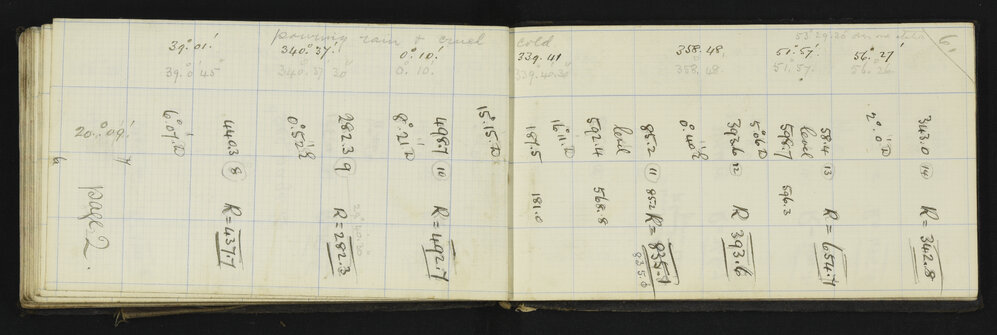 pouring rain & cruel cold
39.° 01!
340.° 37!
0.° 10!
339. 41
358. 48.
51.° 57!
56.° 27'
39.° 0' 45"
340. 37 20"
0.° 10.
339. 40. 30"
358. 48.
51.° 57.
56. 26.
20.° 09!
page 2.
6.° 01! D
440.3 (8) R = 437.7
0.° 52' E
282.3 (9) R = 282.3
8.° 21! D
498.7 (10) R = 492.7
15.° 15. D
187.5 181.0
16.° 11. D
592.4 568.8
level
85.2 (11) 852 R = 835.1
835.0
0.° 40! E
393.6 (12) R 393.6
5.° 06. D
598.7 596.3
level
58.4 (13) R = 654.7
2.° 0' D
343.0 (14) R = 342.8